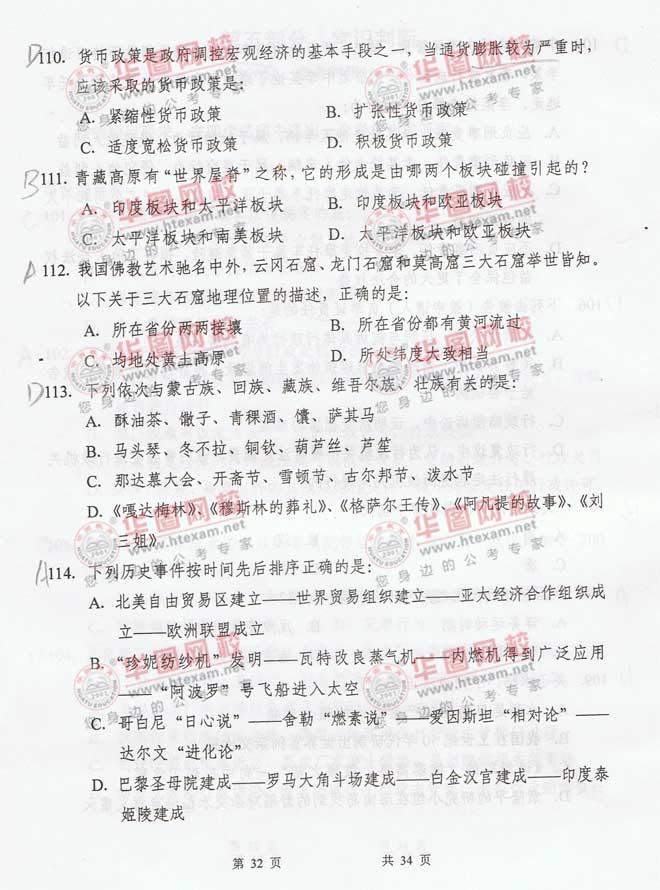 D110. 货币政策是政府调控宏观经济的基本手段之一，当通货膨胀较为严重时，
应该采取的货币政策是：
A. 紧缩性货币政策 B. 扩张性货币政策
C. 适度宽松货币政策 D. 积极货币政策
B111. 青藏高原有“世界屋脊”之称，它的形成是由哪两个板块碰撞引起的？
A. 印度板块和太平洋板块 B. 印度板块和欧亚板块
C. 太平洋板块和南美板块 D. 太平洋板块和欧亚板块
112. 我国佛教艺术驰名中外，云冈石窟、龙门石窟和莫高窟三大石窟举世皆知。
以下关于三大石窟地理位置的描述，正确的是：
A. 所在省份两两接壤 B. 所在省份都有黄河流过
C. 均地处黄土高原 D. 所处纬度大致相当
D113. 下列依次与蒙古族、回族、藏族、维吾尔族、壮族有关的是：
A. 酥油茶、馓子、青稞酒、馕、萨其马
B. 马头琴、冬不拉、铜钦、葫芦丝、芦笙
C. 那达慕大会、开斋节、雪顿节、古尔邦节、泼水节
D.《嘎达梅林》、《穆斯林的葬礼》、《格萨尔王传》、《阿凡提的故事》、《刘
三姐》
A114. 下列历史事件按时间先后排序正确的是：
A. 北美自由贸易区建立——世界贸易组织建立——亚太经济合作组织成
立——欧洲联盟成立
B. “珍妮纺纱机”发明——瓦特改良蒸气机——内燃机得到广泛应用
——“阿波罗”号飞船进入太空
C. 哥白尼“日心说”——舍勒“燃素说”——爱因斯坦“相对论”——
达尔文“进化论”
D. 巴黎圣母院建成——罗马大角斗场建成——白金汉宫建成——印度泰
姬陵建成
第 32 页 共 34 页
华图网校
www.htexam.com
www.htexam.net
您身边的公考专家